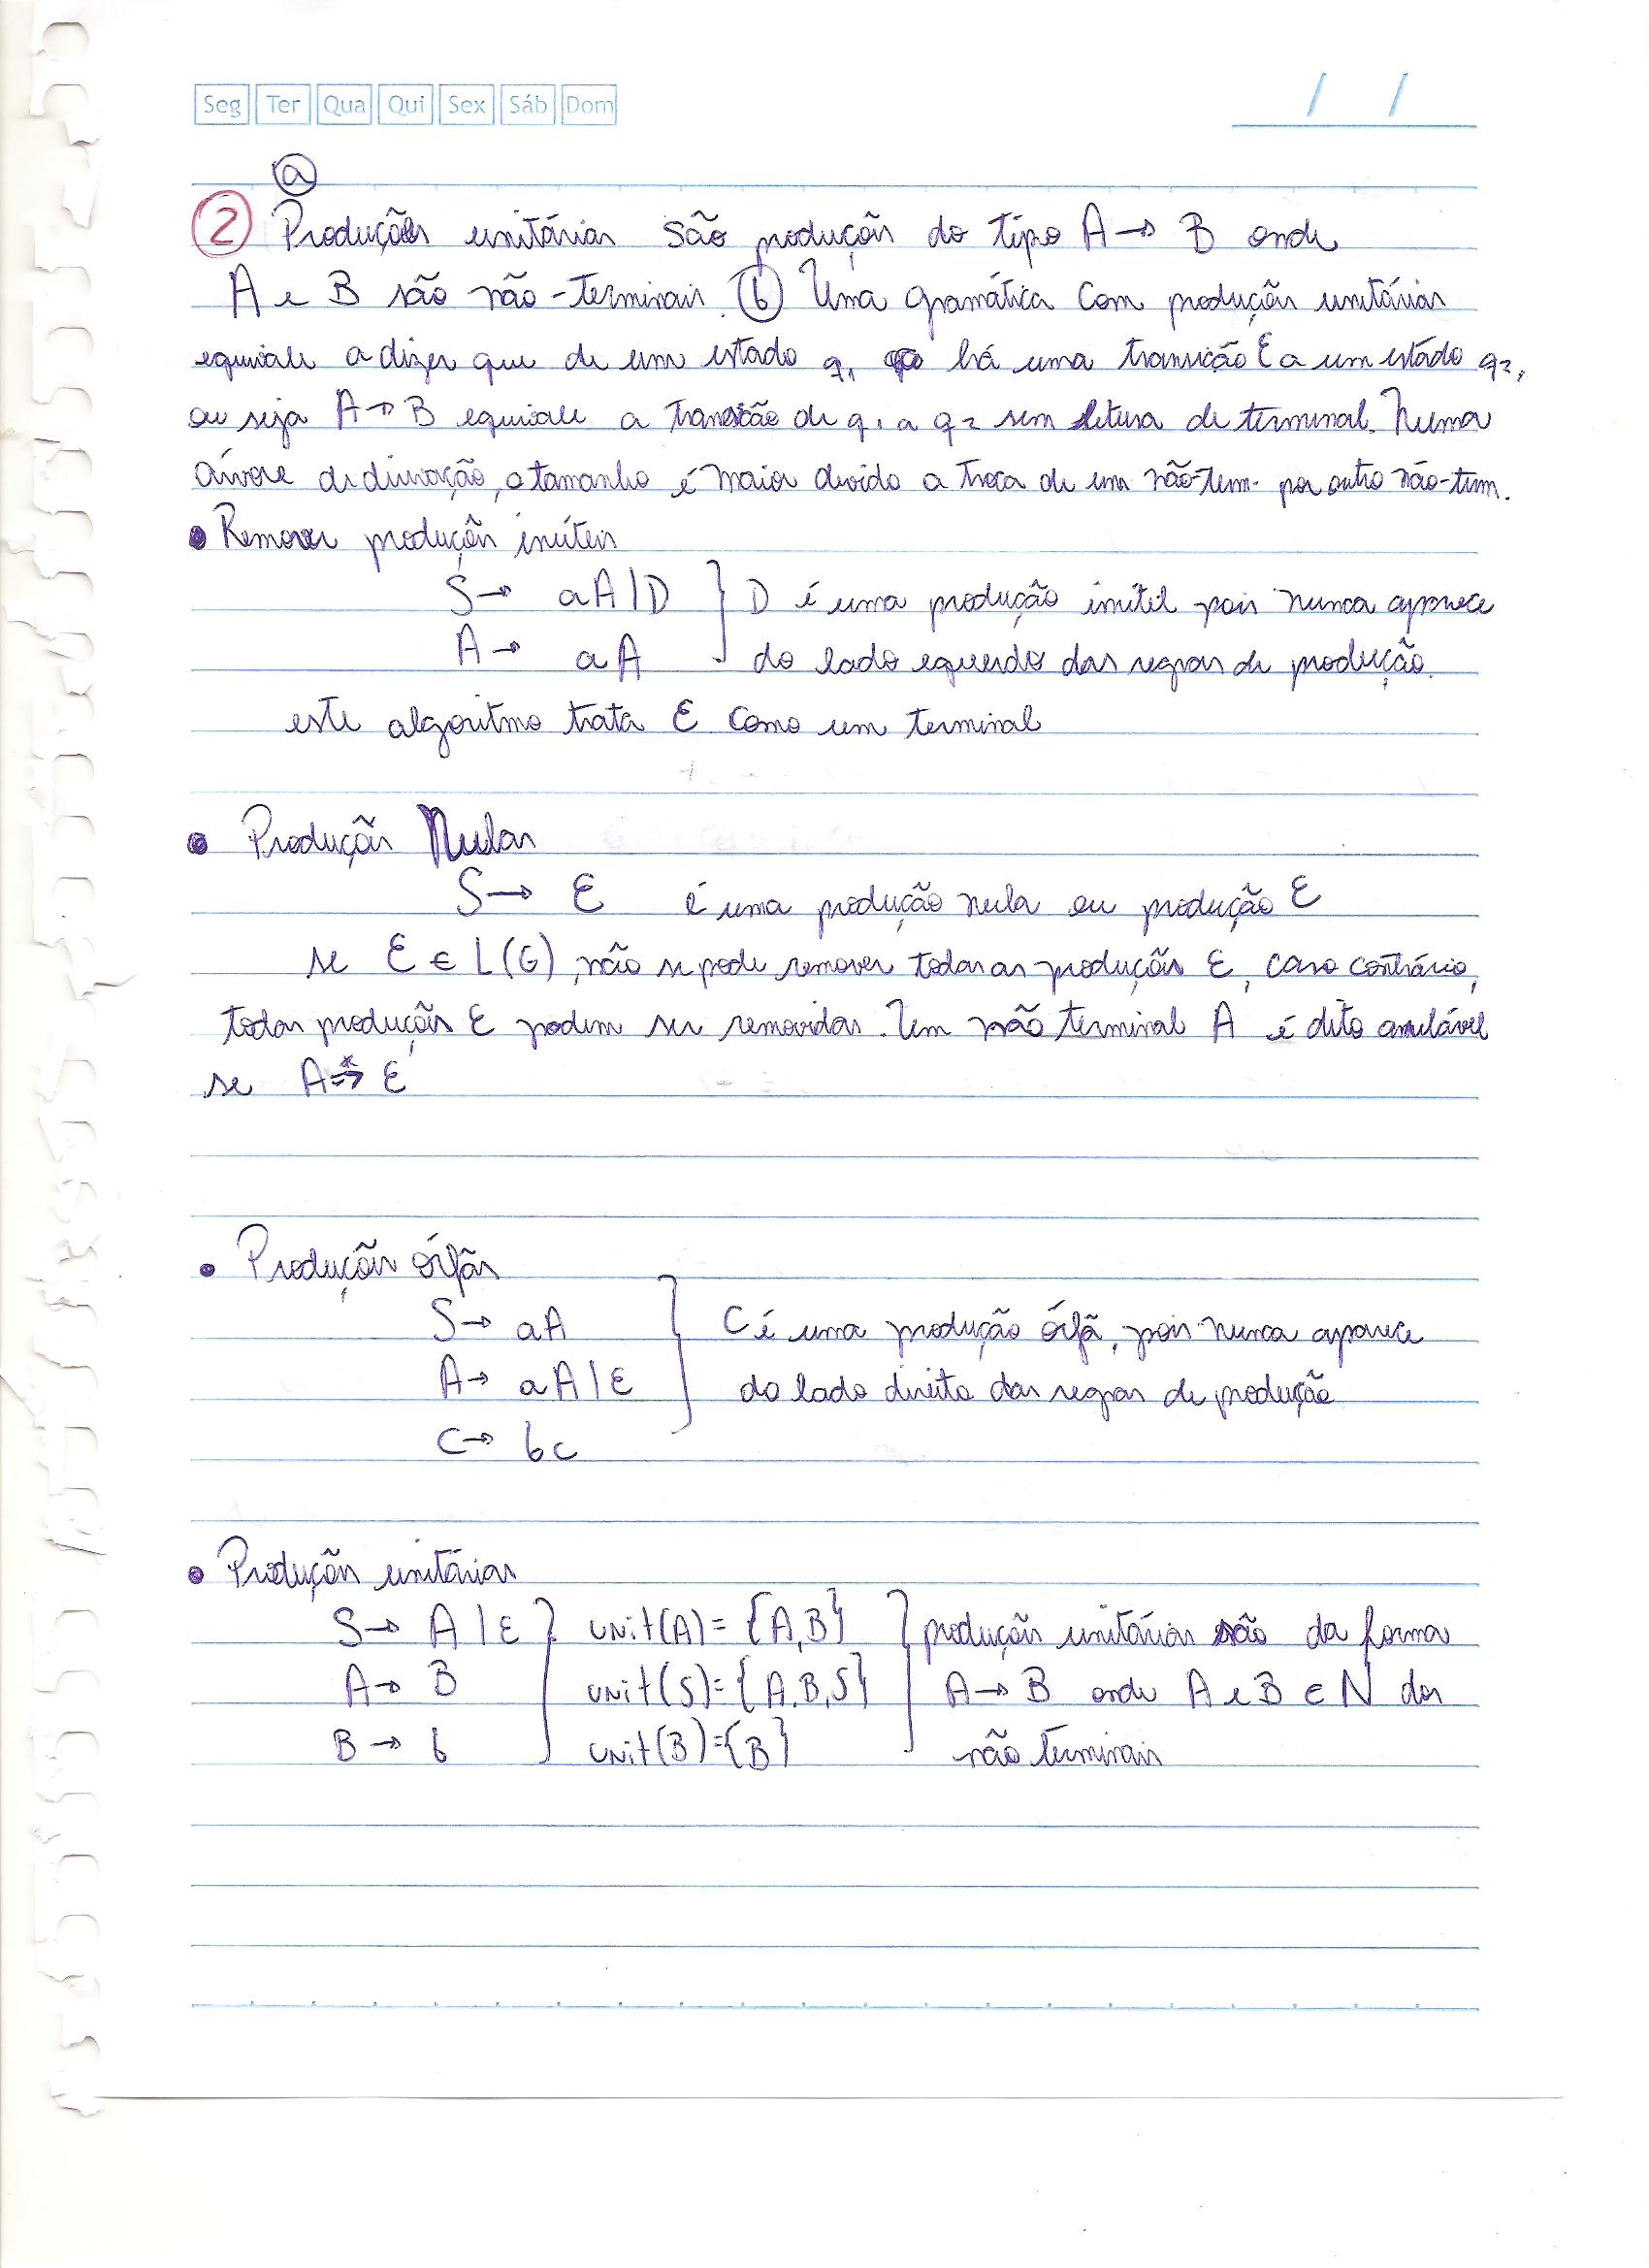 Seg Ter Qua Qui Sex Sáb Dom / /
a
2 Produções unitárias são produções do tipo A → B onde
A e B são não-terminais. b Uma gramática com produções unitárias
equivale a dizer que de um estado q1 há uma transição ε a um estado q2,
ou seja A → B equivale a transição de q1 a q2 sem leitura de terminal. Numa
árvore de derivação, o tamanho é maior devido a troca de um não-term. por outro não-term.
• Remover produções inúteis
S → aA | D } D é uma produção inútil pois nunca aparece
A → aA do lado equerdo das regras de produção.
este algoritmo trata ε como um terminal
• Produções Nulas
S → ε é uma produção nula ou produção ε
se ε ∈ L(G), não se pode remover todas as produções ε, caso contrário,
todas produções ε podem ser removidas. Um não terminal A é dito anulável
se A ⇒* ε
• Produções órfãs
S → aA } C é uma produção órfã, pois nunca aparece
A → aA | ε do lado direito das regras de produção
C → bc
• Produções unitárias
S → A | ε } unit(A) = {A, B} } produções unitárias são da forma
A → B unit(S) = {A, B, S} A → B onde A e B ∈ N dos
B → b unit(B) = {B} não terminais